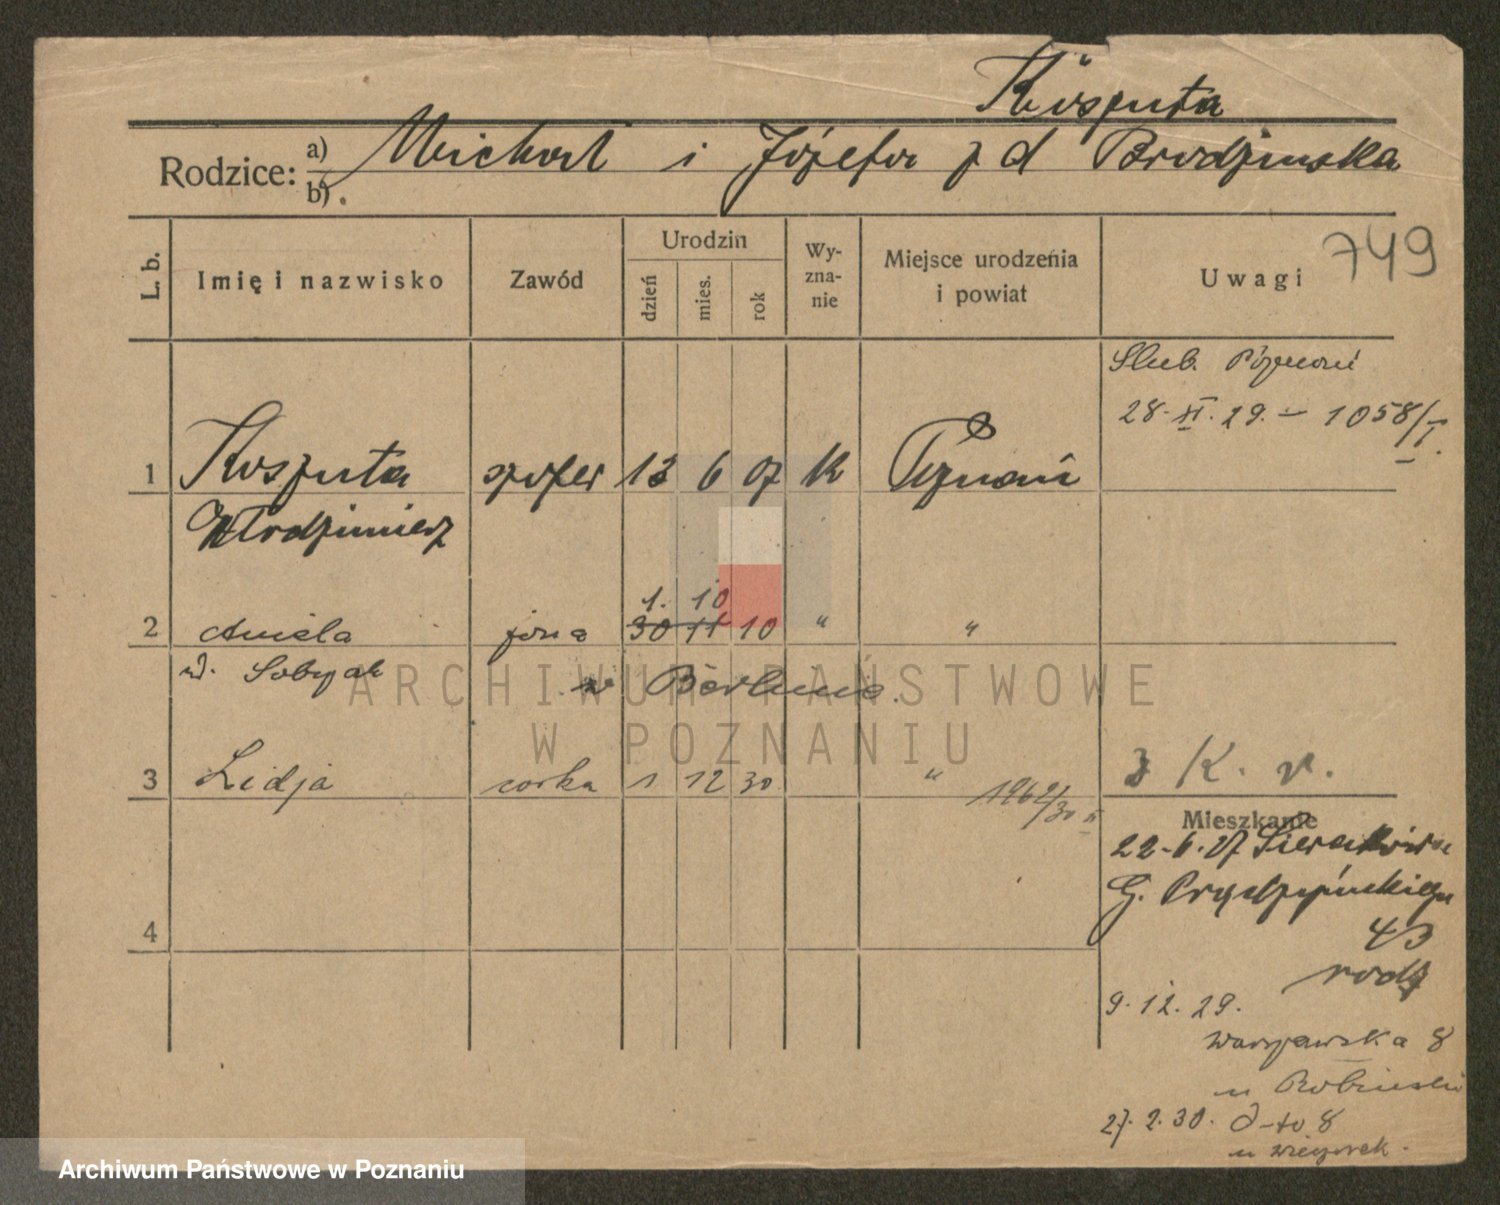 Koszuta
Rodzice: a) Michał i Józefa z d Brodzinska
b)
749
L. b.
Imię i nazwisko
Zawód
Urodzin
dzień
mies.
rok
Wy-
zna-
nie
Miejsce urodzenia
i powiat
Uwagi
Slub. Poznań
28. XI. 29. – 1058/I.
1 Koszuta szofer 13 6 07 K Poznań
Włodzimierz
1. 10
2 Aniela żona 30 11 10 " "
u. Sobczak w Berlinie.
3 Lidja corka 1 12 30 "
1962/30 II
3 K. v.
Mieszkanie
22-6.27
G. Prądzyńskiego
43
rodz
4
9.12.29.
Warszawska 8
u Robinski
27.2.30. d-to 8
u Wieczorek.
ARCHIWUM PAŃSTWOWE
W POZNANIU
Archiwum Państwowe w Poznaniu